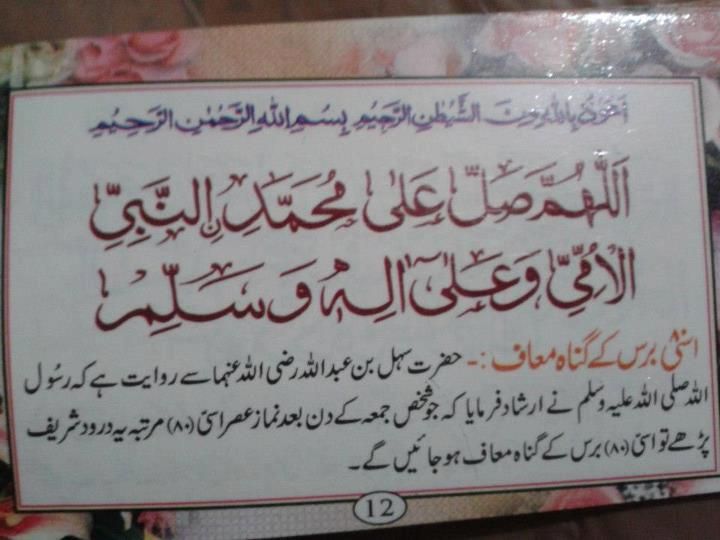 اَعُوْذُ بِاللهِ مِنَ الشَّيْطٰنِ الرَّجِيْمِ بِسْمِ اللهِ الرَّحْمٰنِ الرَّحِيْمِ
اَللّٰهُمَّ صَلِّ عَلٰى مُحَمَّدِ نِ النَّبِيِّ
الْاُمِّيِّ وَعَلٰٓى اٰلِهٖ وَسَلِّمْ
اسّی برس کے گناہ معاف :- حضرت سہل بن عبداللہ رضی اللہ عنہما سے روایت ہے کہ رسول
اللہ صلی اللہ علیہ وسلم نے ارشاد فرمایا کہ جو شخص جمعہ کے دن بعد نماز عصر اسّی (۸۰) مرتبہ یہ درود شریف
پڑھے تو اسّی (۸۰) برس کے گناہ معاف ہو جائیں گے۔
12